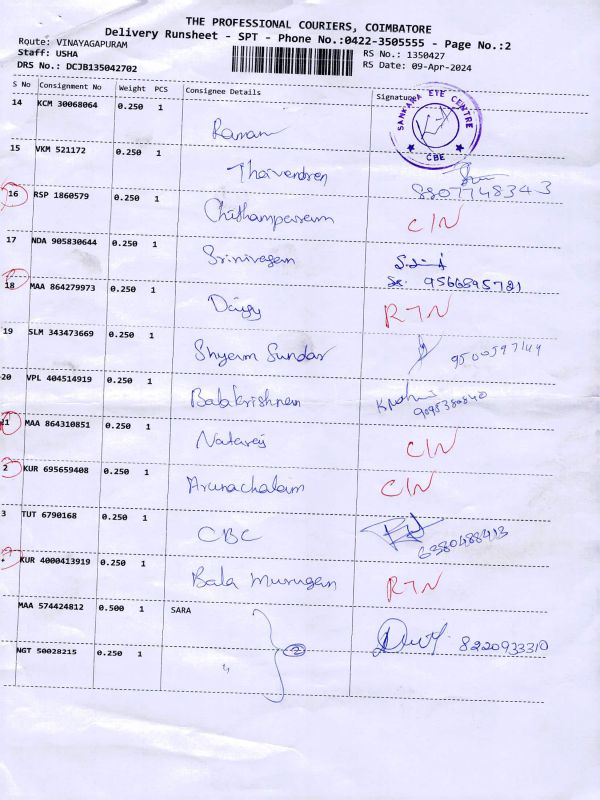 THE PROFESSIONAL COURIERS, COIMBATORE
Delivery Runsheet - SPT - Phone No.:0422-3505555 - Page No.:2
Route: VINAYAGAPURAM RS No.: 1350427
Staff: USHA RS Date: 09-Apr-2024
DRS No.: DCJB135042702
S No Consignment No Weight PCS Consignee Details Signature
SANKARA EYE CENTRE CBE
14 KCM 30068064 0.250 1
Raman
15 VKM 521172 0.250 1
Thaivendren 8807748343
16 RSP 1860579 0.250 1
Chithamparam C/N
17 NDA 905830644 0.250 1
Srinivasan
9566595721
18 MAA 864279973 0.250 1
Daisy RTN
19 SLM 343473669 0.250 1
Shyam Sundar
20 VPL 404514919 0.250 1
Balakrishnan
9095380840
21 MAA 864310851 0.250 1
Nataraj C/N
2 KUR 695659408 0.250 1
Arunachalam C/N
3 TUT 6790168 0.250 1
CBC 6380488413
KUR 4000413919 0.250 1
Bala Murugan RTN
MAA 574424812 0.500 1 SARA
2 8220933310
NGT 50028215 0.250 1 "